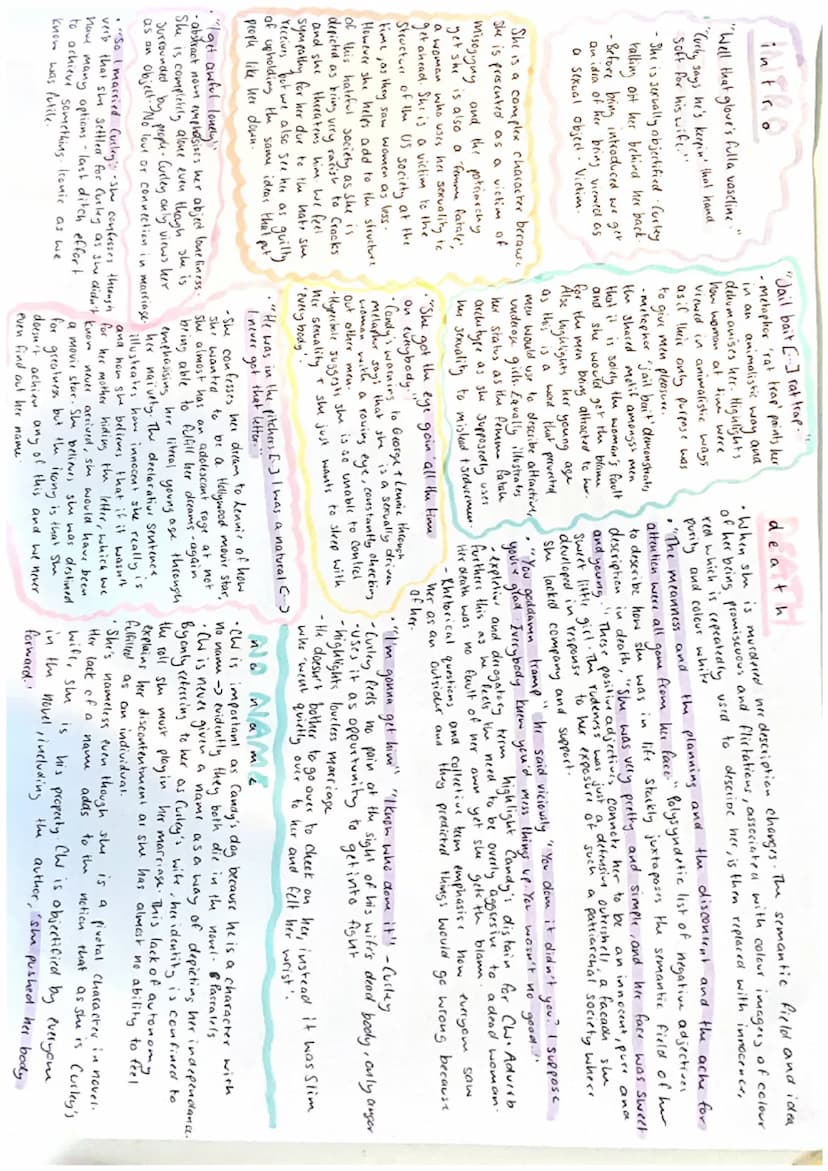 intro
"Well that glove's fulla vaseline."
"Curley says he's keepin' that hand
soft for his wife."
- She is sexually objectified. Curley
talking abt her behind her back
- Before being introduced we get
an idea of her being viewed as
a sexual object. Victim.
She is a complex character because
she is presented as a victim of
misogyny and the patriarchy
yet she is also a 'femme fatale';
a woman who uses her sexuality to
get ahead. She is a victim to the
structure of the US society at the
time, as they saw women as less.
However she helps add to the structure
of this hateful society as she is
depicted as being very racist to Crooks
and she threatens him. We feel
sympathy for her due to the hate she
receives but we also see her as guilty
of upholding the same ideas that put
people like her down.
• "I get awful lonely"
- Abstract noun emphasises her abject loneliness.
She is completely alone even though she is
surrounded by people. Curley only views her
as an object. No love or connection in marriage.
• "So I married Curley" - She confesses through
verb that she settled for Curley as she didn't
have many options - last ditch effort
to achieve something. Ironic as we
know was futile.
"Jail bait [...] rat trap."
- metaphor 'rat trap' paints her
in an animalistic way and
dehumanises her. Highlights
how women at time were
viewed in animalistic ways
as if their only purpose was
to give men pleasure.
- metaphor 'jail bait' demonstrates
the shared motif amongst men
that it is solely the woman's fault
and she would get the blame
for the men being attracted to her.
Also highlights her young age
as this is a word that
men would use to describe attractive,
underage girls. Equally illustrates
her status as the femme fatale
archetype as she supposedly uses
her sexuality to mislead
• "She got the eye goin' all the time
on everybody."
- Candy's warning to George + Lennie through
metaphor says that she is a sexually driven
woman with a roving eye, constantly checking
out other men.
- Hyperbole suggests she is so unable to control
her sexuality + she just wants to sleep with
'everybody'.
• "He was in the pitchers [...] I was a natural [...]
I never got that letter"
- She confesses her dream to Lennie of how
she wanted to be a Hollywood movie star
She almost has an adolescent rage at not
being able to fulfill her dreams - again
emphasising her literal young age through
her naivety. The declarative sentence
illustrates how innocent she really is
and how she believes that if it wasn't
for her mother hiding the letter, which we
know never arrived, she would have been
a movie star. She believes she was destined
for greatness but the irony is that she
doesn't achieve any of this and we never
even find out her name.
death
• When she is murdered her description changes. The semantic field and idea
of her being promiscuous and flirtatious, associated with colour imagery of colour
red which is repeatedly used to describe her, is then replaced with innocence,
purity and colour white
• "The meanness and the planning and the discontent and the ache for
attention were all gone from her face" Polysyndetic list of negative adjectives
to describe how she was in life starkly juxtaposes the semantic field of her
description in death. "She was very pretty and simple, and her face was sweet
and young." These positive adjectives connote her to be an innocent, pure and
sweet little girl. The rudeness was just a defensive outershell, a facade she
developed in response to her exposure of such a patriarchal society where
she lacked company and support.
• "You goddamn tramp" he said viciously "You done it didn't you? I suppose
you're glad. Everybody knew you'd mess things up. You wasn't no good."
- expletive and derogatory term highlight Candy's distain for CW. Adverb
furthers this as he feels the need to be overly aggressive to a dead woman.
Her death was no fault of her own yet she gets the blame.
- Rhetorical questions and collective term emphasise how everyone saw
her as an outsider and they predicted things would go wrong because
of her.
• "I'm gonna get him" "I know who done it" - Curley
- Curley feels no pain at the sight of his wife's dead body, only anger
- uses it as oppurtunity to get into fight
- highlights loveless marriage
- He doesn't bother to go over to check on her, instead it was Slim
who 'went quietly over to her and felt her wrist'.
no name
• CW is important as Candy's dog because he is a character with
no name → evidently they both die in the novel.
• CW is never given a name as a way of depicting her independance.
By only referring to her as Curley's wife, her identity is confined to
the role she must play in her marriage. This lack of autonomy
explains her discontentment as she has almost no ability to feel
fulfilled as an individual.
• She's nameless even though she is a pivotal character in novel.
Her lack of a name adds to the notion that as she is Curley's
wife, she is his property. CW is objectified by everyone
in the novel, including the author, 'she pushed her body
forward.'